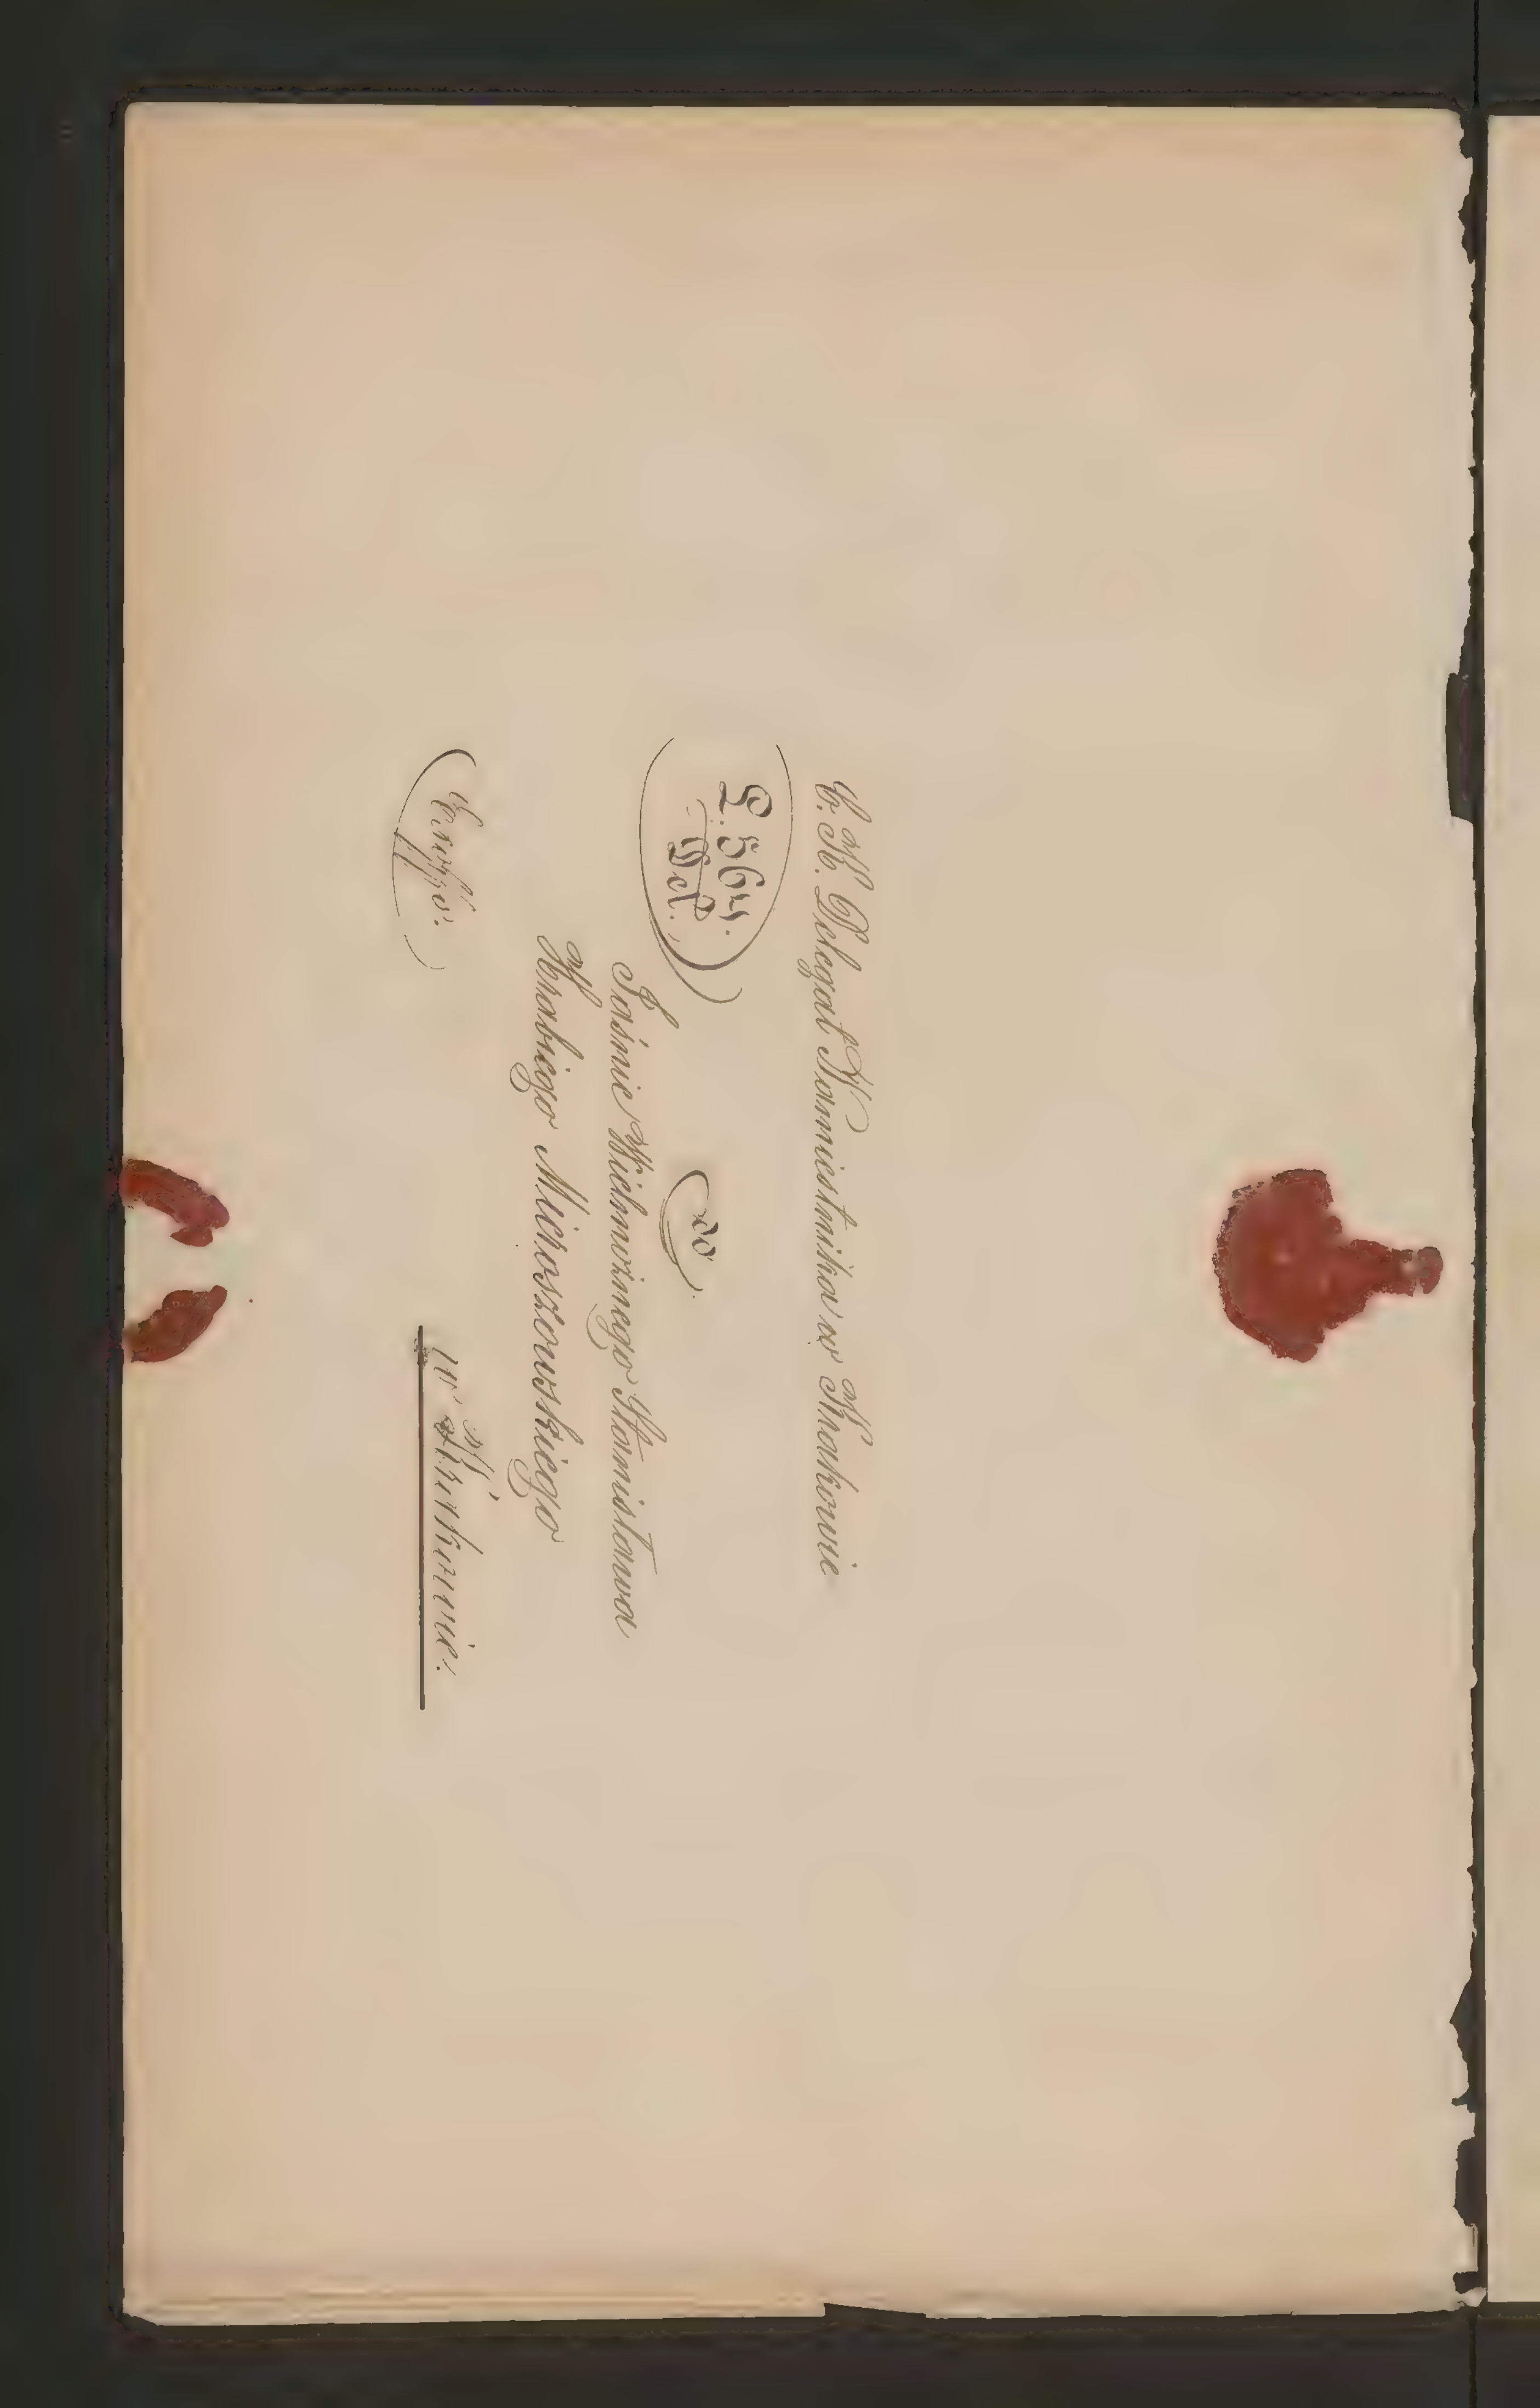 C. K. Delegat Namiestnika w Krakowie
L. 564.
Del.
do
Jaśnie Wielmożnego Stanisława
Hrabiego Mieroszowskiego
w Krakowie.